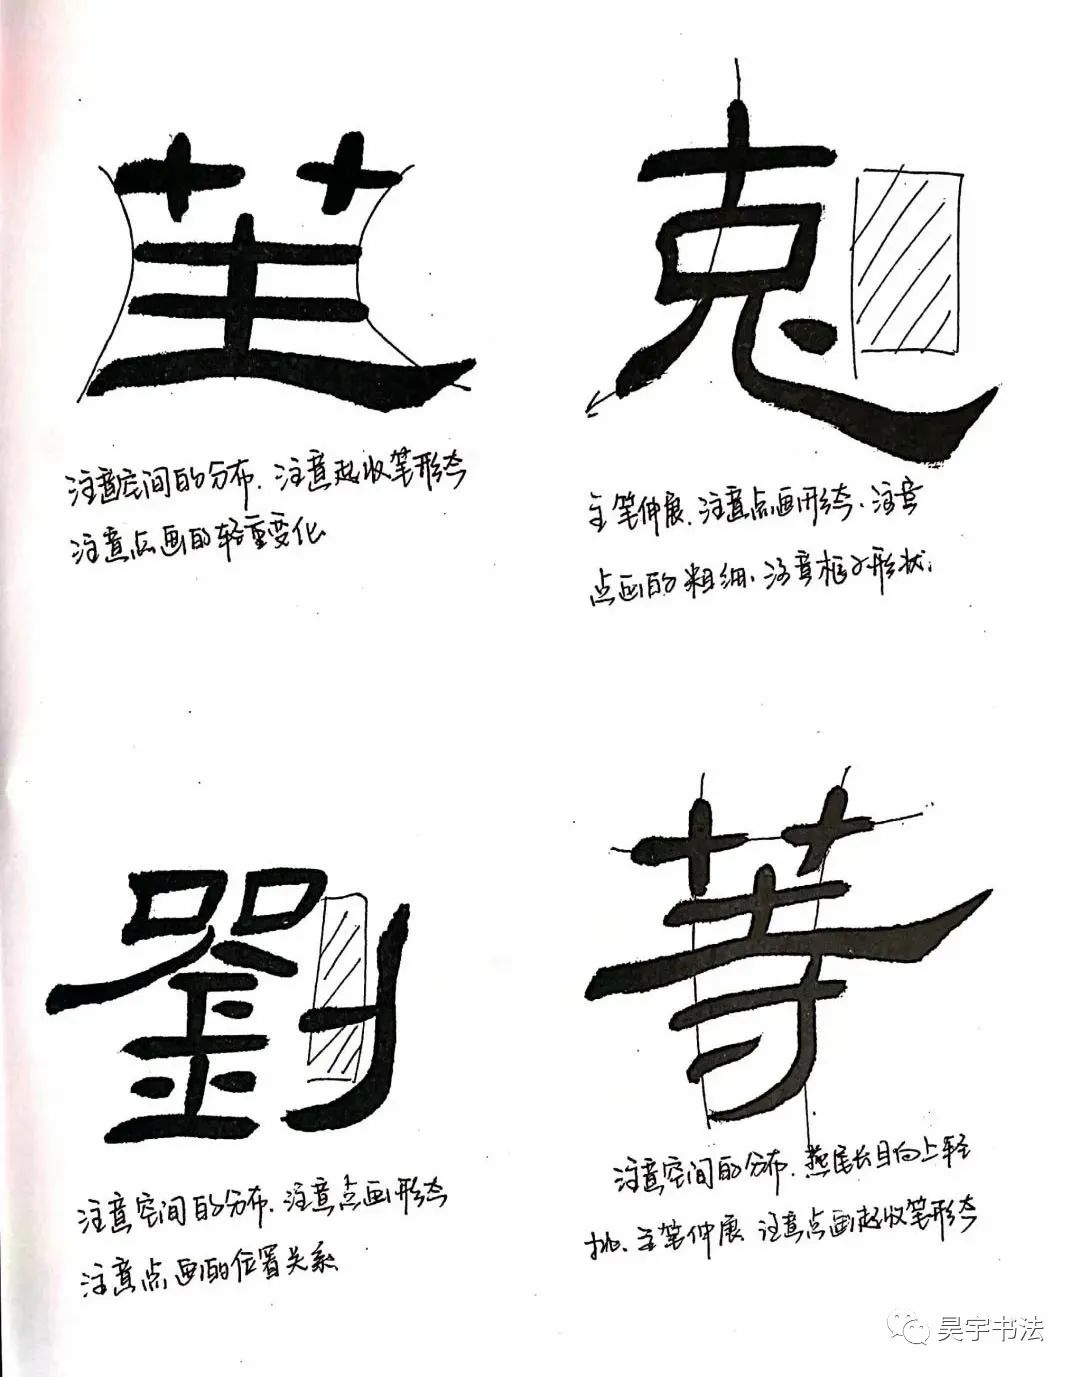 注意空间的分布.注意起收笔形态
注意点画的轻重变化
克
主笔伸展.注意点画形态.注意
点画的粗细.注意框子形状.
劉
注意空间的分布.注意点画形态
注意点画的位置关系
等
注意空间的分布.燕尾长且向上轻
挑.主笔伸展 注意点画起收笔形态
昊宇书法